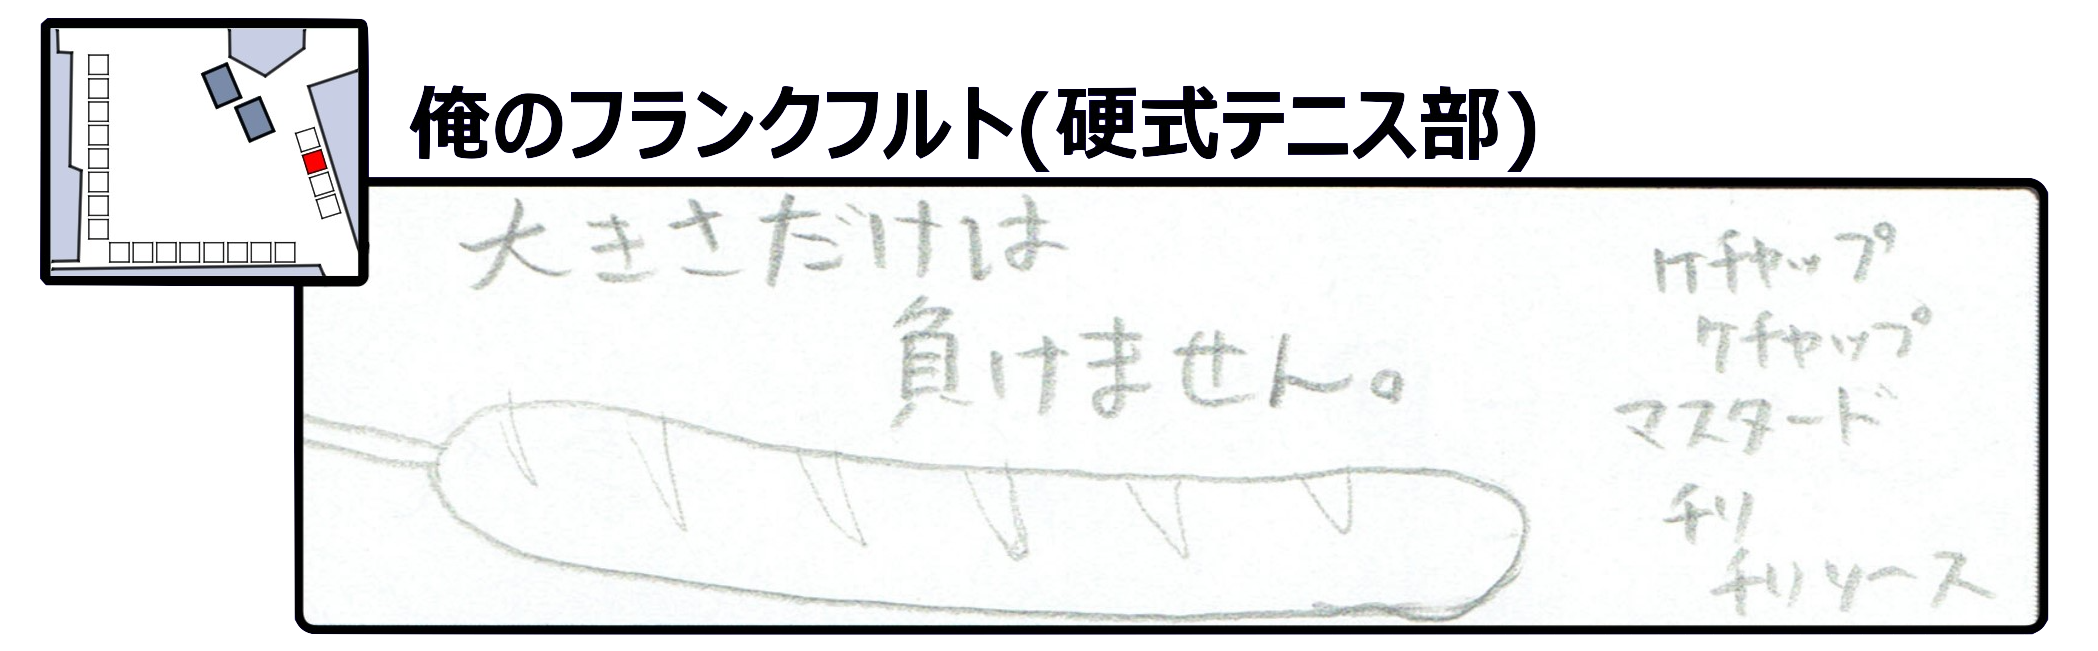 俺のフランクフルト(硬式テニス部)
大きさだけは
負けません。
ケチャップ
ケチャップ
マスタード
チリ
チリソース